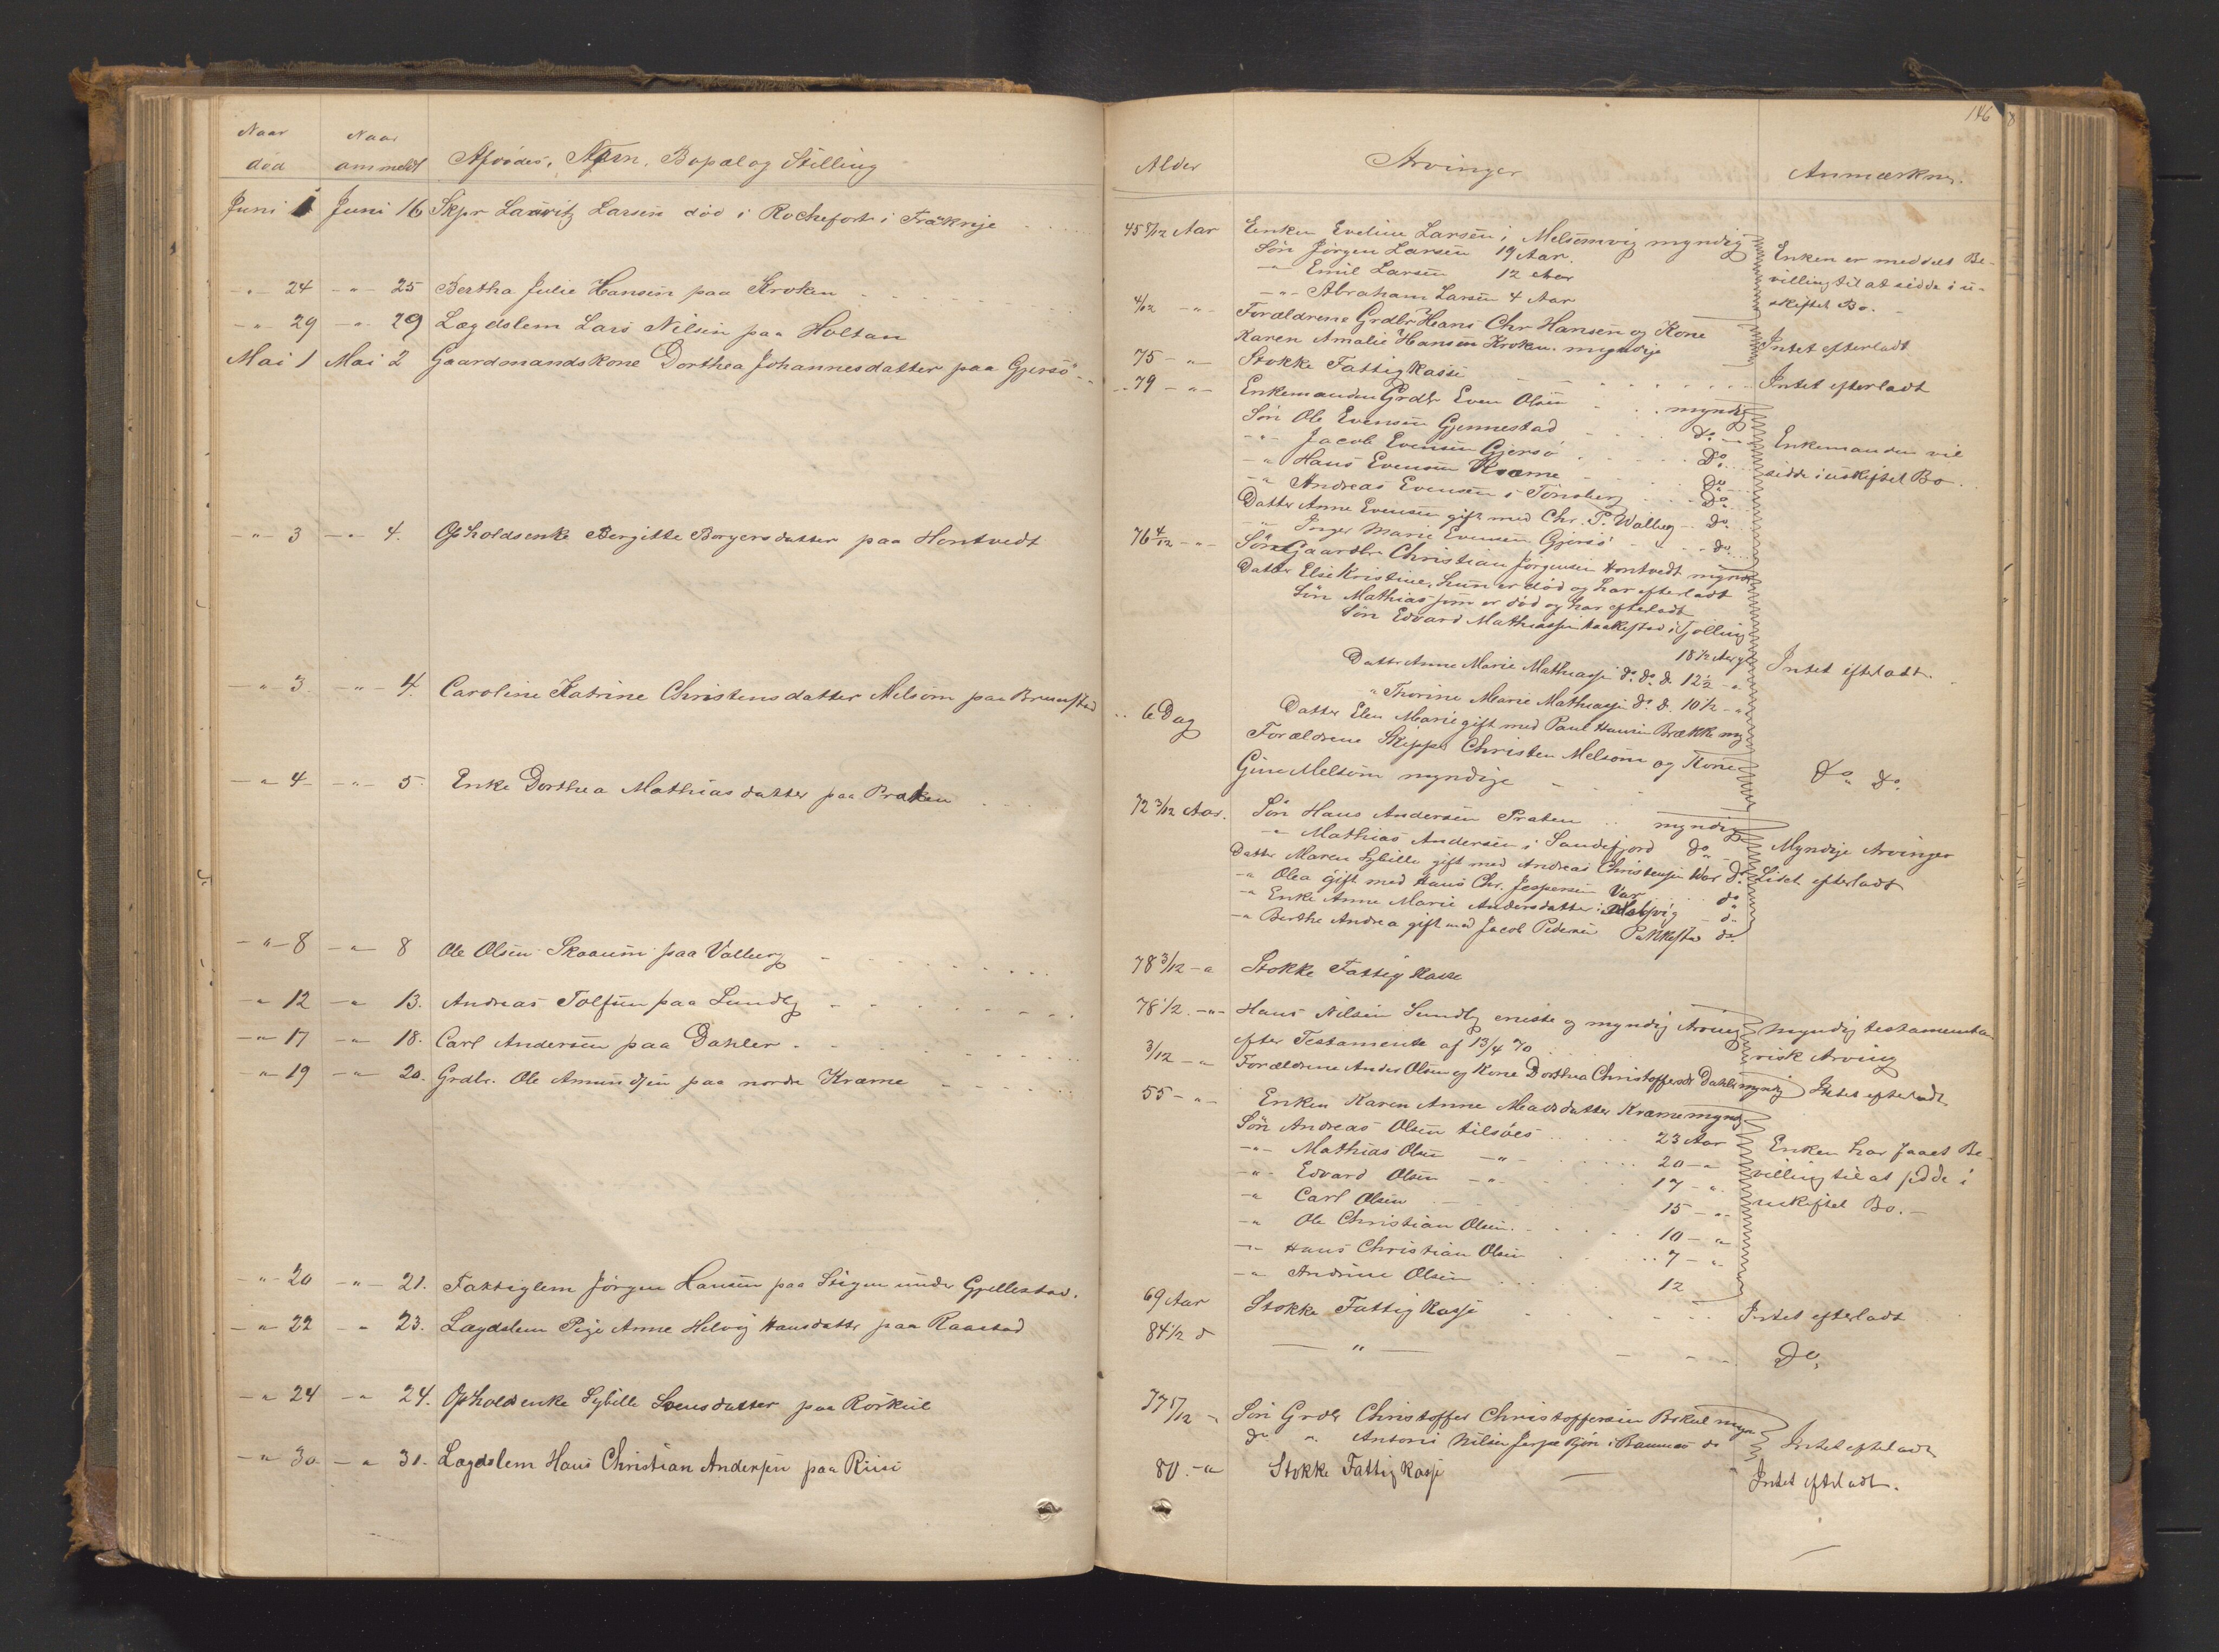 Naar
død
Naar
anmeldt
Afdødes, Navn, Bopæl og Stilling
Juni 1 Juni 16 Skpr Lauritz Larsen død i Rochefort i Frankrije
-"- 24 -"- 25 Bertha Julie Hansen paa Kroken
-"- 29 -"- 29 Lægdslem Lars Nilsen paa Holtan
Mai 1 Mai 2 Gaardmandskone Dorthea Johannesdatter paa Gjersö
-"- 3 -"- 4. Opholdsenke Bergitte Borgersdatter paa Hontvedt
-"- 3 -"- 4. Caroline Katrine Christensdatter Melsom paa Brunstad
-"- 4 -"- 5. Enke Dorthea Mathiasdatter paa Praten
-"- 8 -"- 8 Ole Olsen Skaaum paa Valberg
-"- 12 -"- 13. Andreas Tolfsen paa Sundby
-"- 17 -"- 18. Carl Andersen paa Dahler
-"- 19 -"- 20. Grdbr. Ole Amundsen paa nordre Kræme
-"- 20 -"- 21. Fattiglem Jørgen Hansen paa under Gjellestad.
-"- 22 -"- 23. Lægdslem Pige Anne Helvig Hansdatter paa Raastad
-"- 24 -"- 24. Opholdsenke Sybille Svensdatter paa Rörkul
-"- 30 -"- 31. Lægdslem Hans Christian Andersen paa Riisi
146
Alder
Arvinger
Anmærkng.
45 8/12 Aar Enken Eveline Larsen i Melsomvig myndig
Søn Jørgen Larsen 19 Aar.
-"- Emil Larsen 12 Aar
-"- Abraham Larsen 4 Aar
Enken er meddelt Be-
villing til at sidde i u-
skiftet Bo.
4/12 -"- Forældrene Grdbr Hans Chr Hansen og Kone
Karen Amalie Hansen Kroken. myndije
Intet efterladt
75 -"- Stokke Fattigkasse
Intet efterladt
79 -"- Enkemanden Grdbr Even Olsen myndig
Søn Ole Evensen Gjennestad do
-"- Jacob Evensen Gjersö Do
-"- Hans Evensen Kræme Do
-"- Andreas Evensen i Tönsberg Do
Datter Anne Evensen gift med Chr. P. Walberg do
-"- Inger Marie Evensen Gjersö do
Enkemanden vil
sidde i uskiftet Bo.
76 4/12 -"- Søn Gaardbr Christian Jørgensen Hontvedt myndi
Datter Else Kristine, hun er død og har efterladt
Søn Mathias som er død og har efterladt
Søn Edvard Mathiassen i Tjølling
18 1/2 Aar
Datter Anne Marie Mathiasse do. do. d. 12 1/2 -"-
" Thorine Marie Mathiasse do. d. 10 1/2 -"-
Datter Elen Marie gift med Paul Hansen Brække my
Intet efterladt.
6 Dag Forældrene Skipper Christen Melsom og Kone
Gine Melsom myndije
Do Do.
72 3/12 Aar. Søn Hans Andersen Praten myndig
-"- Mathias Andersen i Sandefjord do
Datter Maren Sybille gift med Andreas Christensen Vær do
-"- Olea gift med Hans Chr. Jespersen Vær do
-"- Enke Anne Marie Andersdatter i do
-"- Berthe Andrea gift med Jacob Pedersen do.
Myndije Arvinger
Lidet efterladt
78 3/12 -"- Stokke Fattigkasse
78 1/2 -"- Hans Nilsen Sundby eneste og myndig Arving
efter Testamente af 13/4 70
myndig testamenta-
risk Arving
3/12 -"- Forældrene Anders Olsen og Kone Dorthea Christoffersdr Dahler myndig
Intet efterladt
55 -"- Enken Karen Anne Madsdatter Kræme mynd
Søn Andreas Olsen tilsöes 23 Aar
-"- Mathias Olsen -"- 20 -"-
-"- Edvard Olsen -"- 17 -"-
-"- Carl Olsen 15 -"-
-"- Ole Christian Olsen 10 -"-
-"- Hans Christian Olsen 7 -"-
-"- Andrine Olsen 12
Enken har faaet Be-
villing til at sidde i
uskiftet Bo.-
69 Aar Stokke Fattigkasse
Intet efterladt
84 1/2 d -"-
Do,
77 5/12 -"- Søn Grdbr Christoffer Christoffersen myn
do " Antoni Nilsen i Ramnes do
Intet efterladt
80 -"- Stokke Fattigkasse
Intet efterladt.